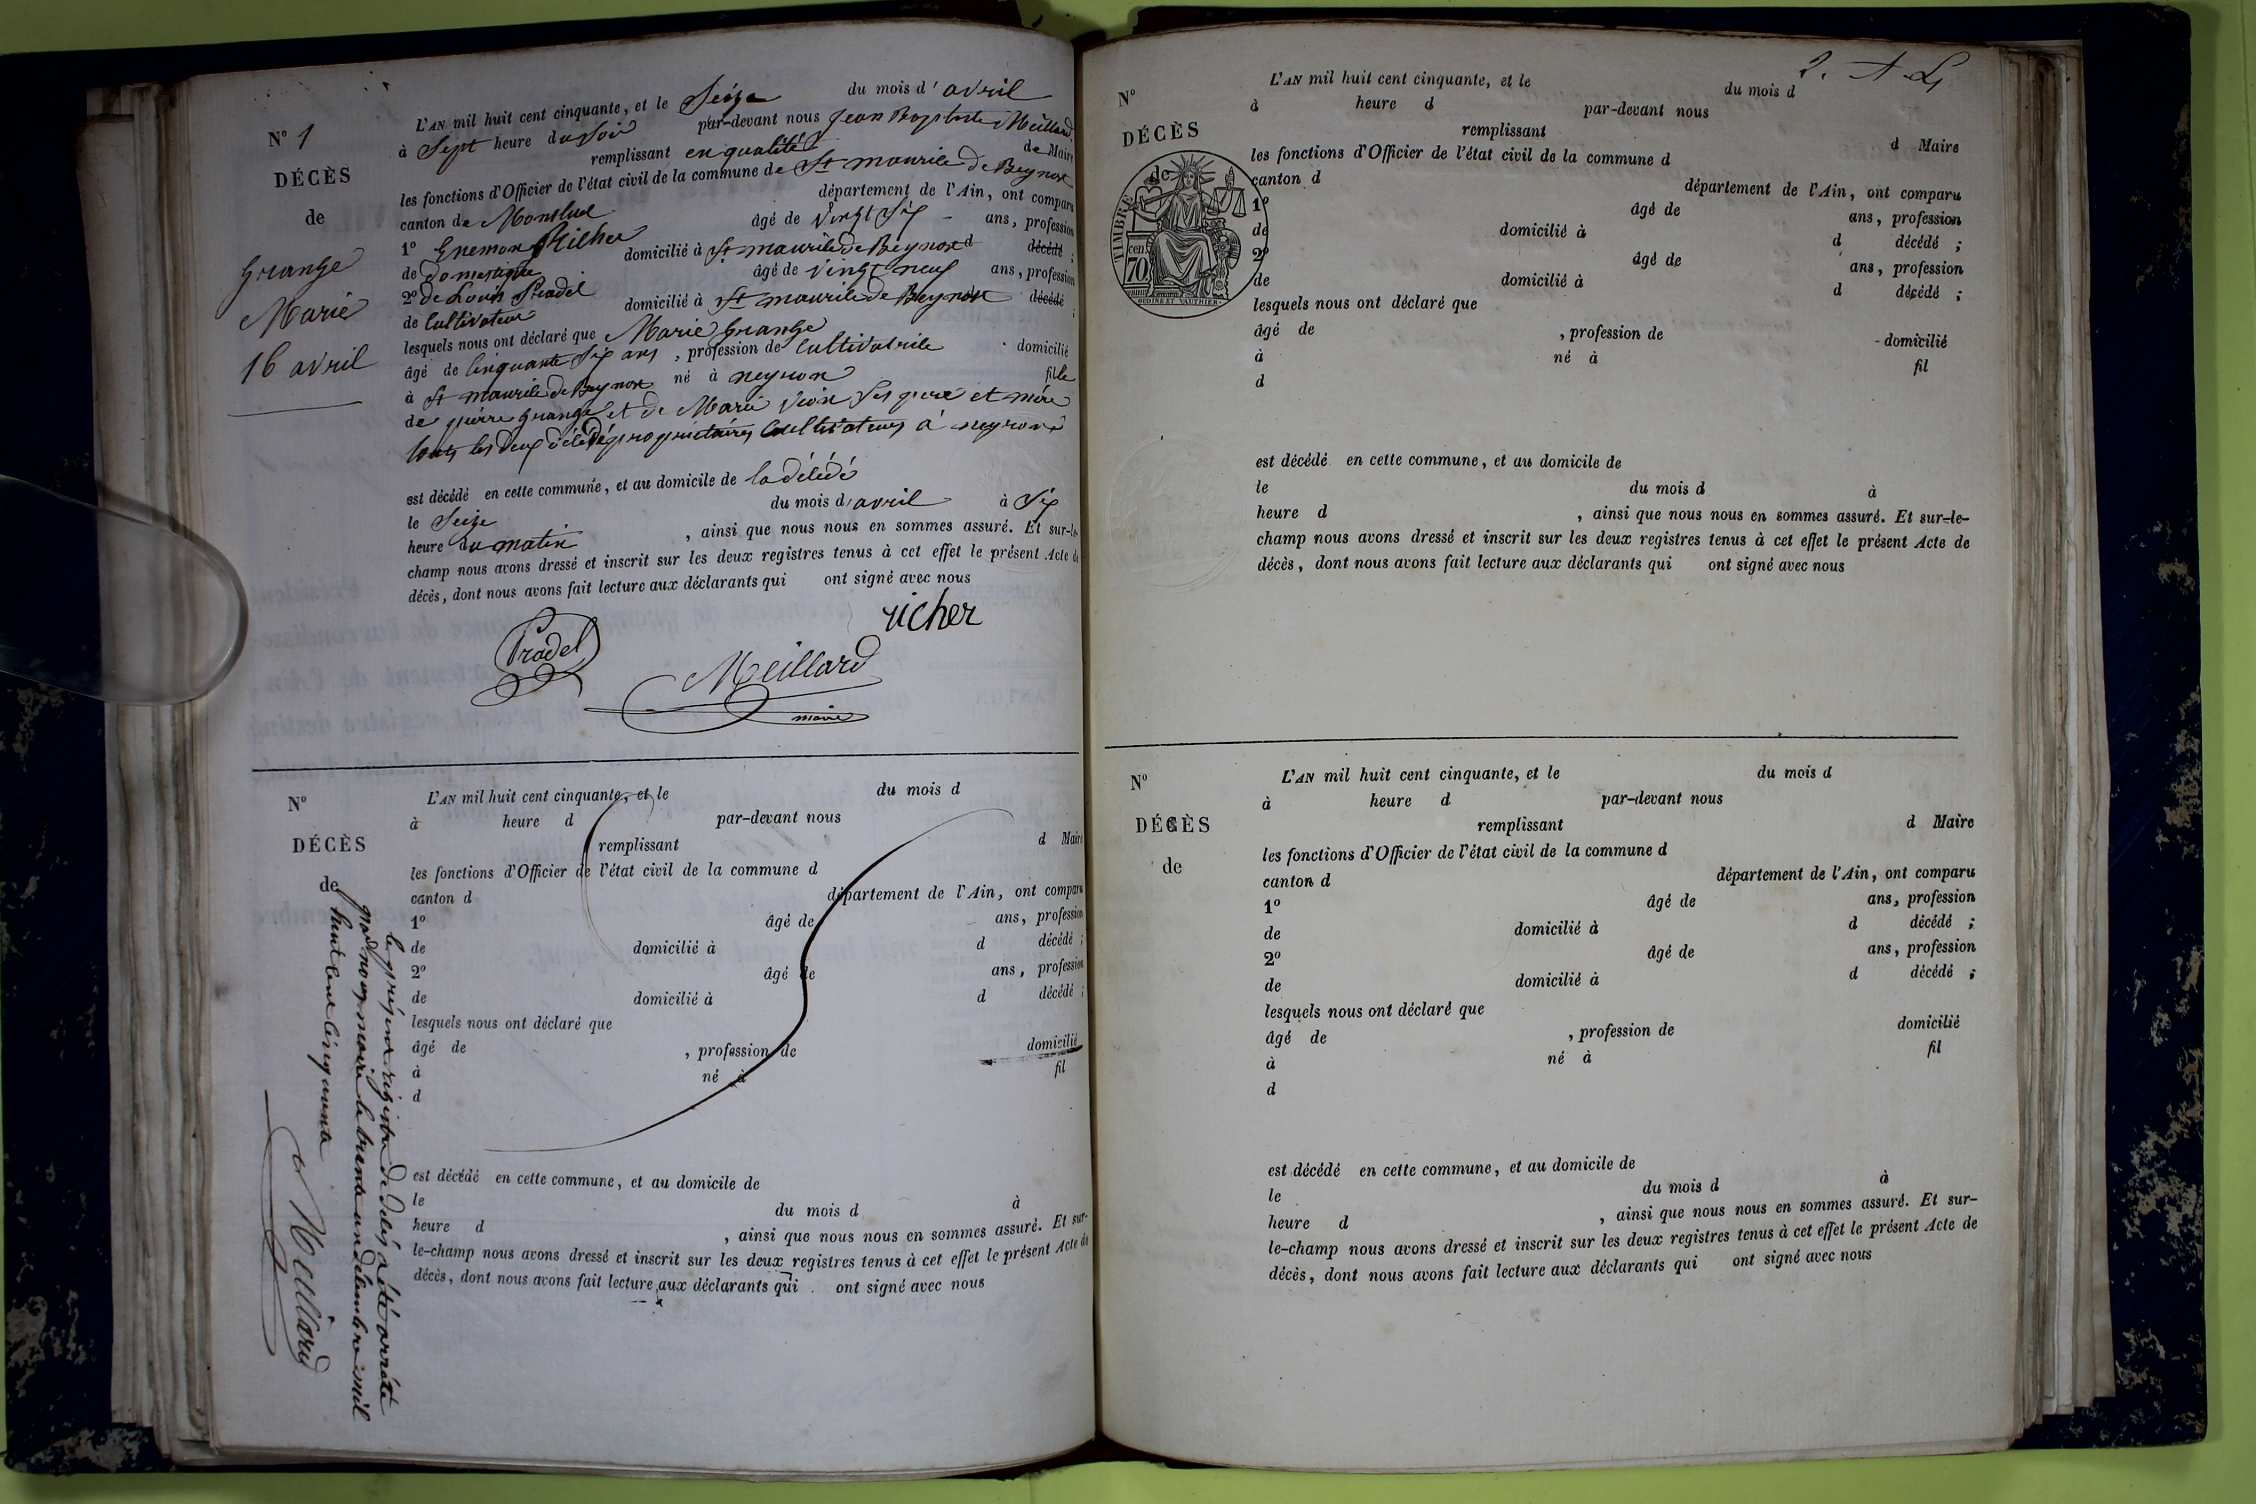 N° 1
DÉCÈS
de
Grange
Marie
16 avril
L'AN mil huit cent cinquante, et le Seize du mois d'avril
à Sept heure du soir par-devant nous Jean Baptiste Meillard
remplissant en qualité de Maire
les fonctions d'Officier de l'état civil de la commune de St maurice de Beynost
canton de Montluel département de l'Ain, ont comparu
1° Richer âgé de vingt Six ans, profession
de domestique domicilié à St maurice de Beynost d décédé ;
2° de Louis Pradel âgé de vingt neuf ans, profession
de Cultivateur domicilié à St maurice de Beynost décédé ;
lesquels nous ont déclaré que Marie Grange
âgé de Cinquante Six ans, profession de Cultivatrice domicilié
à St maurice de Beynost né à neyron fille
de pierre Grange et de Marie Ses père et mère
tous les deux propriétaires Cultivateurs à neyron
est décédé en cette commune, et au domicile de la décédé
le Seize du mois d'avril à Six
heure du matin, ainsi que nous nous en sommes assuré. Et sur-le-
champ nous avons dressé et inscrit sur les deux registres tenus à cet effet le présent Acte de
décès, dont nous avons fait lecture aux déclarants qui ont signé avec nous
richer
Pradel
Meillard
maire
N°
DÉCÈS
de
L'AN mil huit cent cinquante, et le du mois d
à heure d par-devant nous
remplissant d Maire
les fonctions d'Officier de l'état civil de la commune d
canton d département de l'Ain, ont comparu
1° âgé de ans, profession
de domicilié à d décédé ;
2° âgé de ans, profession
de domicilié à d décédé ;
lesquels nous ont déclaré que
âgé de , profession de domicilié
à né à fil
d
est décédé en cette commune, et au domicile de
le du mois d à
heure d , ainsi que nous nous en sommes assuré. Et sur-
le-champ nous avons dressé et inscrit sur les deux registres tenus à cet effet le présent Acte de
décès, dont nous avons fait lecture aux déclarants qui ont signé avec nous
le présent registre de décès a été arrêté
par nous maire le trente un décembre mil
huit cent cinquante
Meillard
2.
N°
DÉCÈS
de
TIMBRE
70
cen
OUDINE ET VAUTHIER
L'AN mil huit cent cinquante, et le du mois d
à heure d par-devant nous
remplissant d Maire
les fonctions d'Officier de l'état civil de la commune d
canton d département de l'Ain, ont comparu
1° âgé de ans, profession
de domicilié à d décédé ;
2° âgé de ans, profession
de domicilié à d décédé ;
lesquels nous ont déclaré que
âgé de , profession de domicilié
à né à fil
d
est décédé en cette commune, et au domicile de
le du mois d à
heure d , ainsi que nous nous en sommes assuré. Et sur-le-
champ nous avons dressé et inscrit sur les deux registres tenus à cet effet le présent Acte de
décès, dont nous avons fait lecture aux déclarants qui ont signé avec nous
N°
DÉCÈS
de
L'AN mil huit cent cinquante, et le du mois d
à heure d par-devant nous
remplissant d Maire
les fonctions d'Officier de l'état civil de la commune d
canton d département de l'Ain, ont comparu
1° âgé de ans, profession
de domicilié à d décédé ;
2° âgé de ans, profession
de domicilié à d décédé ;
lesquels nous ont déclaré que
âgé de , profession de domicilié
à né à fil
d
est décédé en cette commune, et au domicile de
le du mois d à
heure d , ainsi que nous nous en sommes assuré. Et sur-
le-champ nous avons dressé et inscrit sur les deux registres tenus à cet effet le présent Acte de
décès, dont nous avons fait lecture aux déclarants qui ont signé avec nous